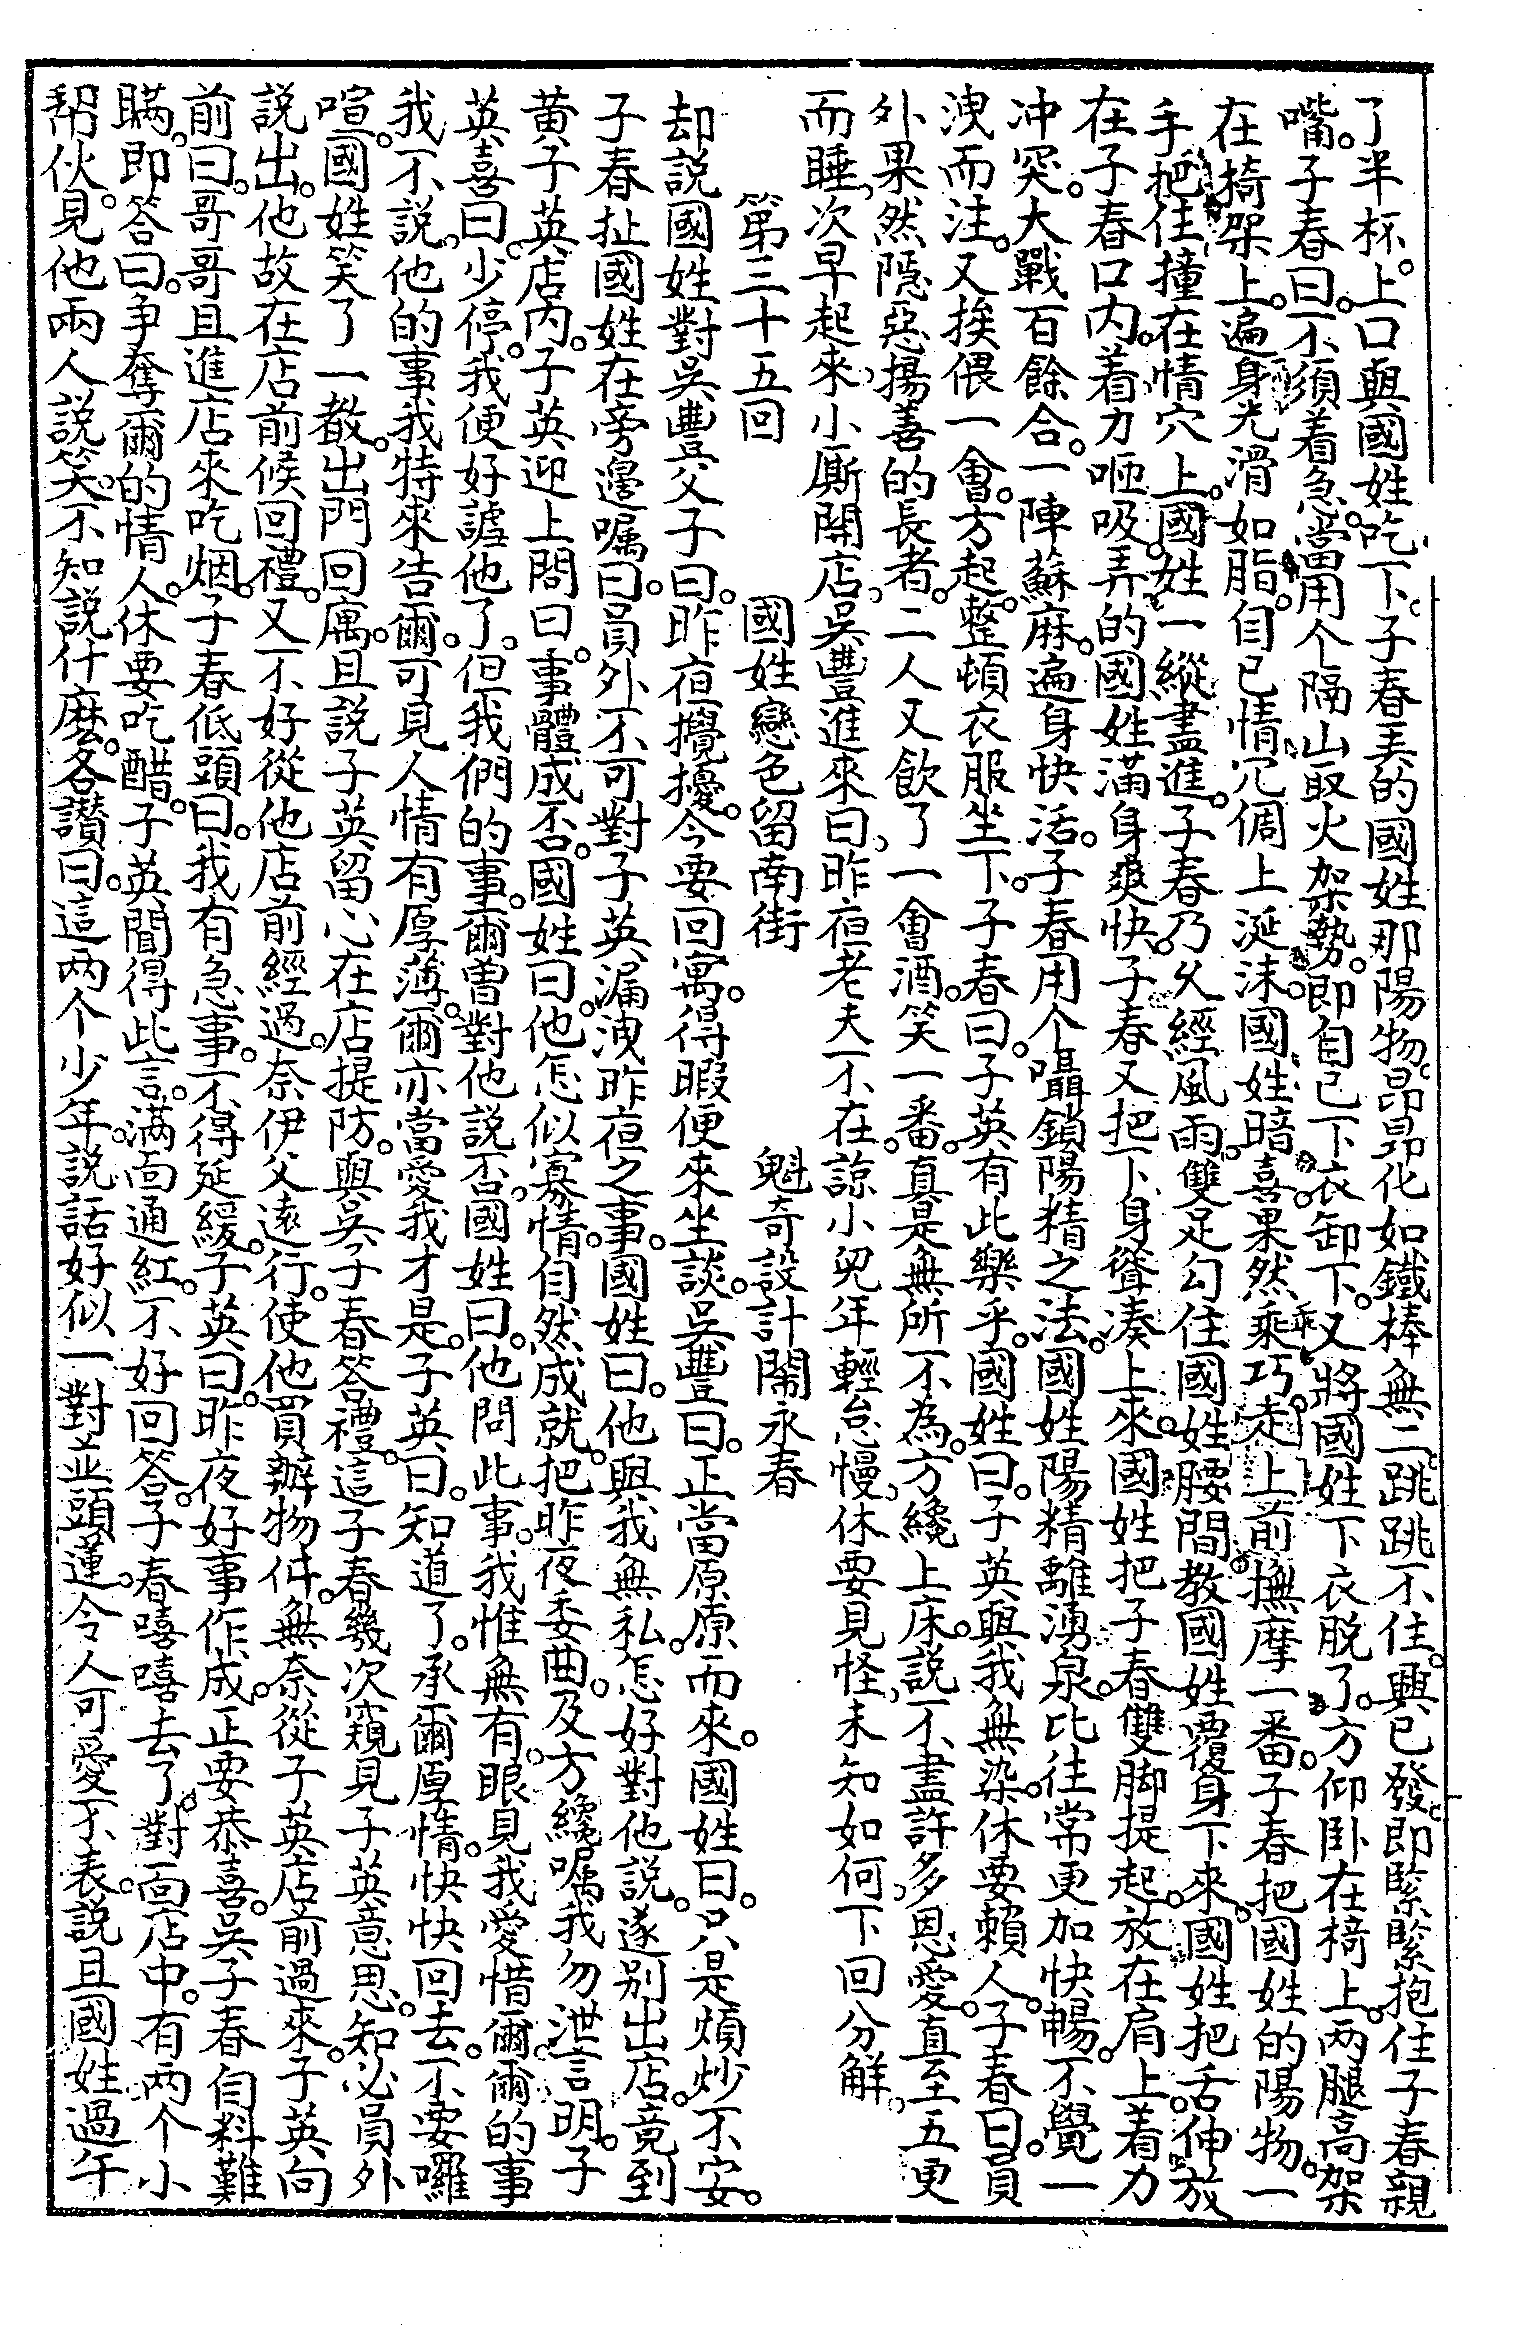 了半杯。上口與國姓吃下。子春美的國姓那陽物昂昂化如鐵棒無二跳跳不住。興已發。即緊緊抱住子春親
嘴。子春曰。不須着急。當用个隔山取火架勢。即自己下衣卸下。又將國姓下衣脫了。方仰卧在椅上。两腿高架
在椅架上。遍身光滑如脂。自己情穴倜上涎沫。國姓暗喜。果然乘巧。走上前撫摩一番。子春把國姓的陽物。一
手把住撞在情穴上。國姓一縱盡進。子春乃久經風雨。雙足勾住國姓腰間。教國姓覆身下來。國姓把舌伸放
在子春口內。着力咂吸。弄的國姓滿身爽快。子春又把下身聳凑上來。國姓把子春雙脚提起。放在肩上。着力
冲突。大戰百餘合。一陣蘇麻。遍身快活。子春用个囁鎖陽精之法。國姓陽精離湧泉。比往常更加快暢。不覺一
洩而注。又挨偎一會。方起。整頓衣服坐下。子春曰。子英有此樂乎。國姓曰。子英與我無染。休要賴人。子春曰。員
外果然隱惡揚善的長者。二人又飲了一會酒。笑一番。真是無所不為。方纔上床。說不盡許多恩愛。直至五更
而睡。次早起來。小厮開店。吳豐進來曰。昨夜老夫不在。諒小兒年輕怠慢。休要見怪。未知如何。下回分解。
第三十五回　國姓戀色留南街　魁奇設計鬧永春
却說國姓對吳豐父子曰。昨夜攪擾。今要回寓。得暇便來坐談。吳豐曰。正當原原而來。國姓曰。只是煩炒不安。
子春扯國姓在旁邊嘱曰。員外不可對子英漏洩昨夜之事。國姓曰。他與我無私。怎好對他說。遂別出店。竟到
黄子英店內。子英迎上問曰。事體成否。國姓曰。他怎似寡情。自然成就。把昨夜委曲。及方纔嘱我勿泄言明。子
英喜曰。少停。我便好謔他了。但我們的事。爾曾對他說否。國姓曰。他問此事。我惟無有。眼見我愛惜爾。爾的事
我不說。他的事我特來告爾。可見人情有厚薄。爾亦當愛我才是。子英曰。知道了。承爾厚情。快快回去。不要囉
喧。國姓笑了一散。出門回寓。且說子英留心在店提防。與吳子春答禮。這子春幾次窺見子英意思。知必員外
說出。他故在店前候回禮。又不好從他店前經過。奈伊父遠行。使他買辦物件。無奈從子英店前過來。子英向
前曰。哥哥且進店來吃烟。子春低頭曰。我有急事。不得延緩。子英曰。昨夜好事作成。正要恭喜。吳子春自料難
瞞。即答曰。争奪爾的情人。休要吃醋。子英聞得此言。满面通紅。不好回答。子春嘻嘻去了。對面店中。有两个小
帮伙。見他兩人說笑。不知說什麽。各讃曰。這两个少年。說話好似一對並頭蓮。令人可愛。不表。說且國姓過午